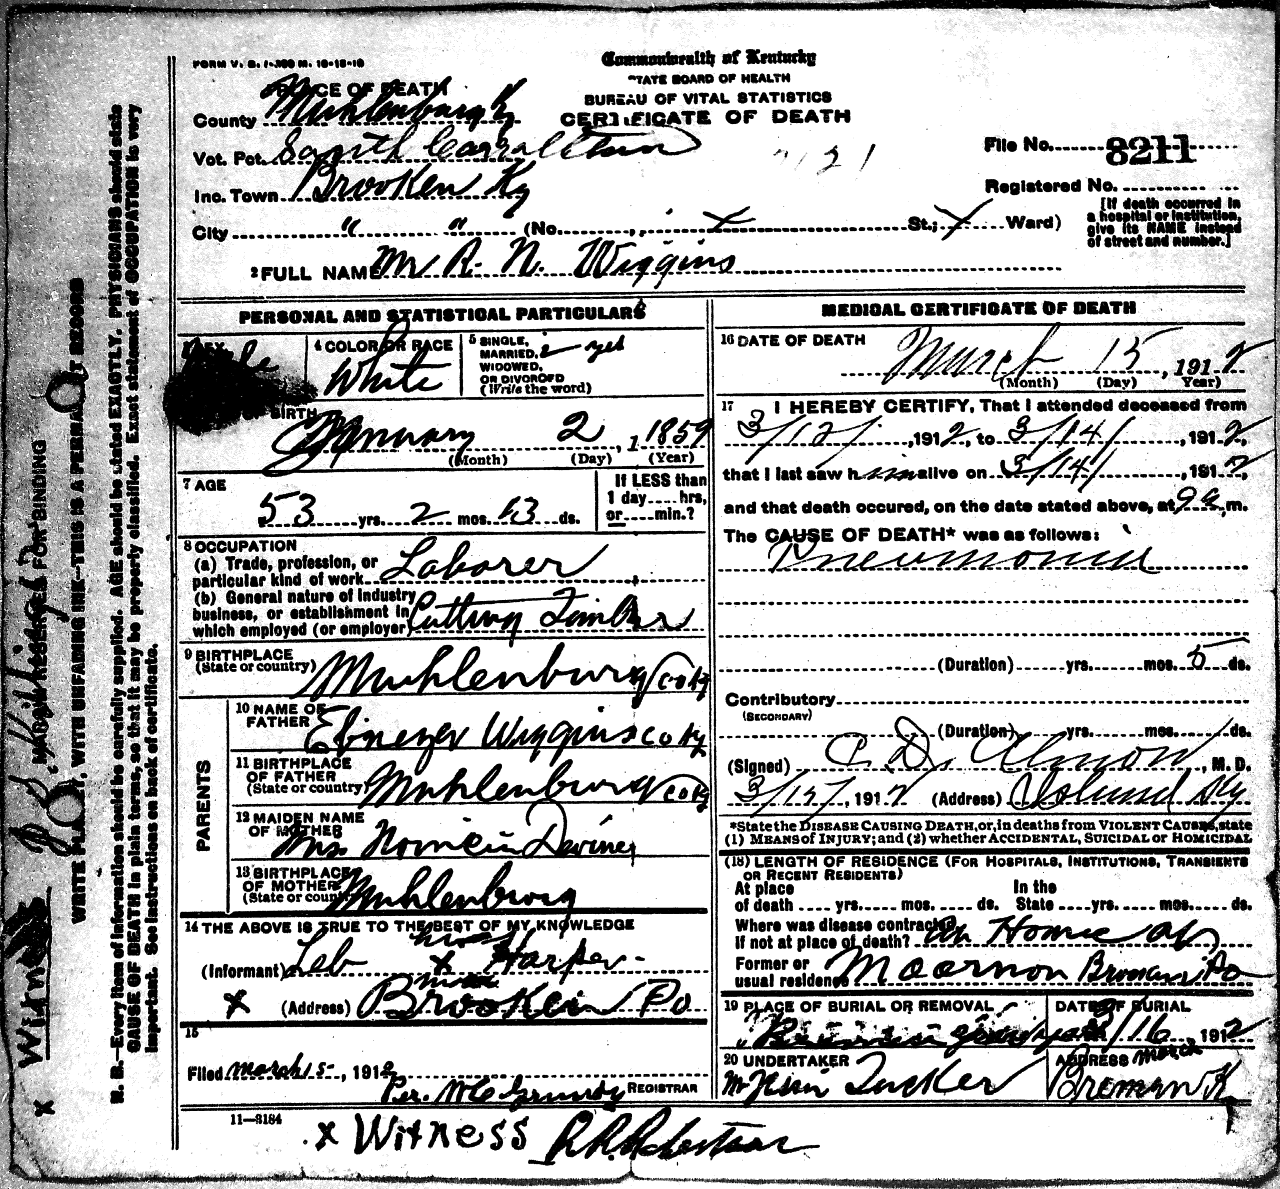 FORM V. S. 1-300 M. 10-18-10
Commonwealth of Kentucky
STATE BOARD OF HEALTH
BUREAU OF VITAL STATISTICS
CERTIFICATE OF DEATH
PLACE OF DEATH
County Muhlenburg Ky
Vot. Pct. South Carrallton
Inc. Town Brooken Ky
City " " (No. x St.; x Ward)
File No. 8211
Registered No.
[If death occurred in
a hospital or institution,
give its NAME instead
of street and number.]
2 FULL NAME Mr R. N. Wiggins
PERSONAL AND STATISTICAL PARTICULARS
4 COLOR OR RACE
White
5 SINGLE,
MARRIED, yes
WIDOWED,
OR DIVORCED
(Write the word)
OF BIRTH
January 2, 1 1859
(Month) (Day) (Year)
7 AGE
53 yrs. 2 mos. 13 ds.
If LESS than
1 day.... hrs,
or.... min.?
8 OCCUPATION
(a) Trade, profession, or
particular kind of work Laborer
(b) General nature of industry
business, or establishment in
which employed (or employer) Cutting Timber
9 BIRTHPLACE
(State or country) Muhlenburg Co Ky
PARENTS
10 NAME OF
FATHER Ebnezer Wiggins Co Ky
11 BIRTHPLACE
OF FATHER
(State or country) Muhlenburg Co Ky
12 MAIDEN NAME
OF MOTHER Mrs
13 BIRTHPLACE
OF MOTHER
(State or country) Muhlenburg
14 THE ABOVE IS TRUE TO THE BEST OF MY KNOWLEDGE
(Informant) Leb x Harper
x (Address) Brooken Po
15
Filed March 15, 1912
Per. REGISTRAR
11-3184
x Witness R. R. Robertson
MEDICAL CERTIFICATE OF DEATH
16 DATE OF DEATH
March 15, 1912
(Month) (Day) Year)
17 I HEREBY CERTIFY, That I attended deceased from
3/12/, 1912, to 3/14/, 1912,
that I last saw him alive on 3/14/, 1912
and that death occured, on the date stated above, at 9 a. m.
The CAUSE OF DEATH* was as follows:
Pneumonia
(Duration) yrs. mos. 5 ds.
Contributory
(SECONDARY)
(Duration) yrs. mos. ds.
(Signed) , M. D.
, 1912 (Address) Ky
*State the DISEASE CAUSING DEATH, or, in deaths from VIOLENT CAUSES, state
(1) MEANS OF INJURY; and (2) whether ACCIDENTAL, SUICIDAL OR HOMICIDAL
(18) LENGTH OF RESIDENCE (FOR HOSPITALS, INSTITUTIONS, TRANSIENTS
OR RECENT RESIDENTS)
At place
of death .... yrs. mos. ds.
In the
State .... yrs. mos. ds.
Where was disease contracted
If not at place of death? At Home
Former or
usual residence Po
19 PLACE OF BURIAL OR REMOVAL
DATE OF BURIAL
3/16, 1912
20 UNDERTAKER
Tucker
ADDRESS March
Bremen K
x Witness
MARGIN RESERVED FOR BINDING
WRITE PLAINLY, WITH UNFADING INK—THIS IS A PERMANENT RECORD
N. B.—Every item of information should be carefully supplied. AGE should be stated EXACTLY. PHYSICIANS should state
CAUSE OF DEATH in plain terms, so that it may be properly classified. Exact statement of OCCUPATION is very
important. See instructions on back of certificate.